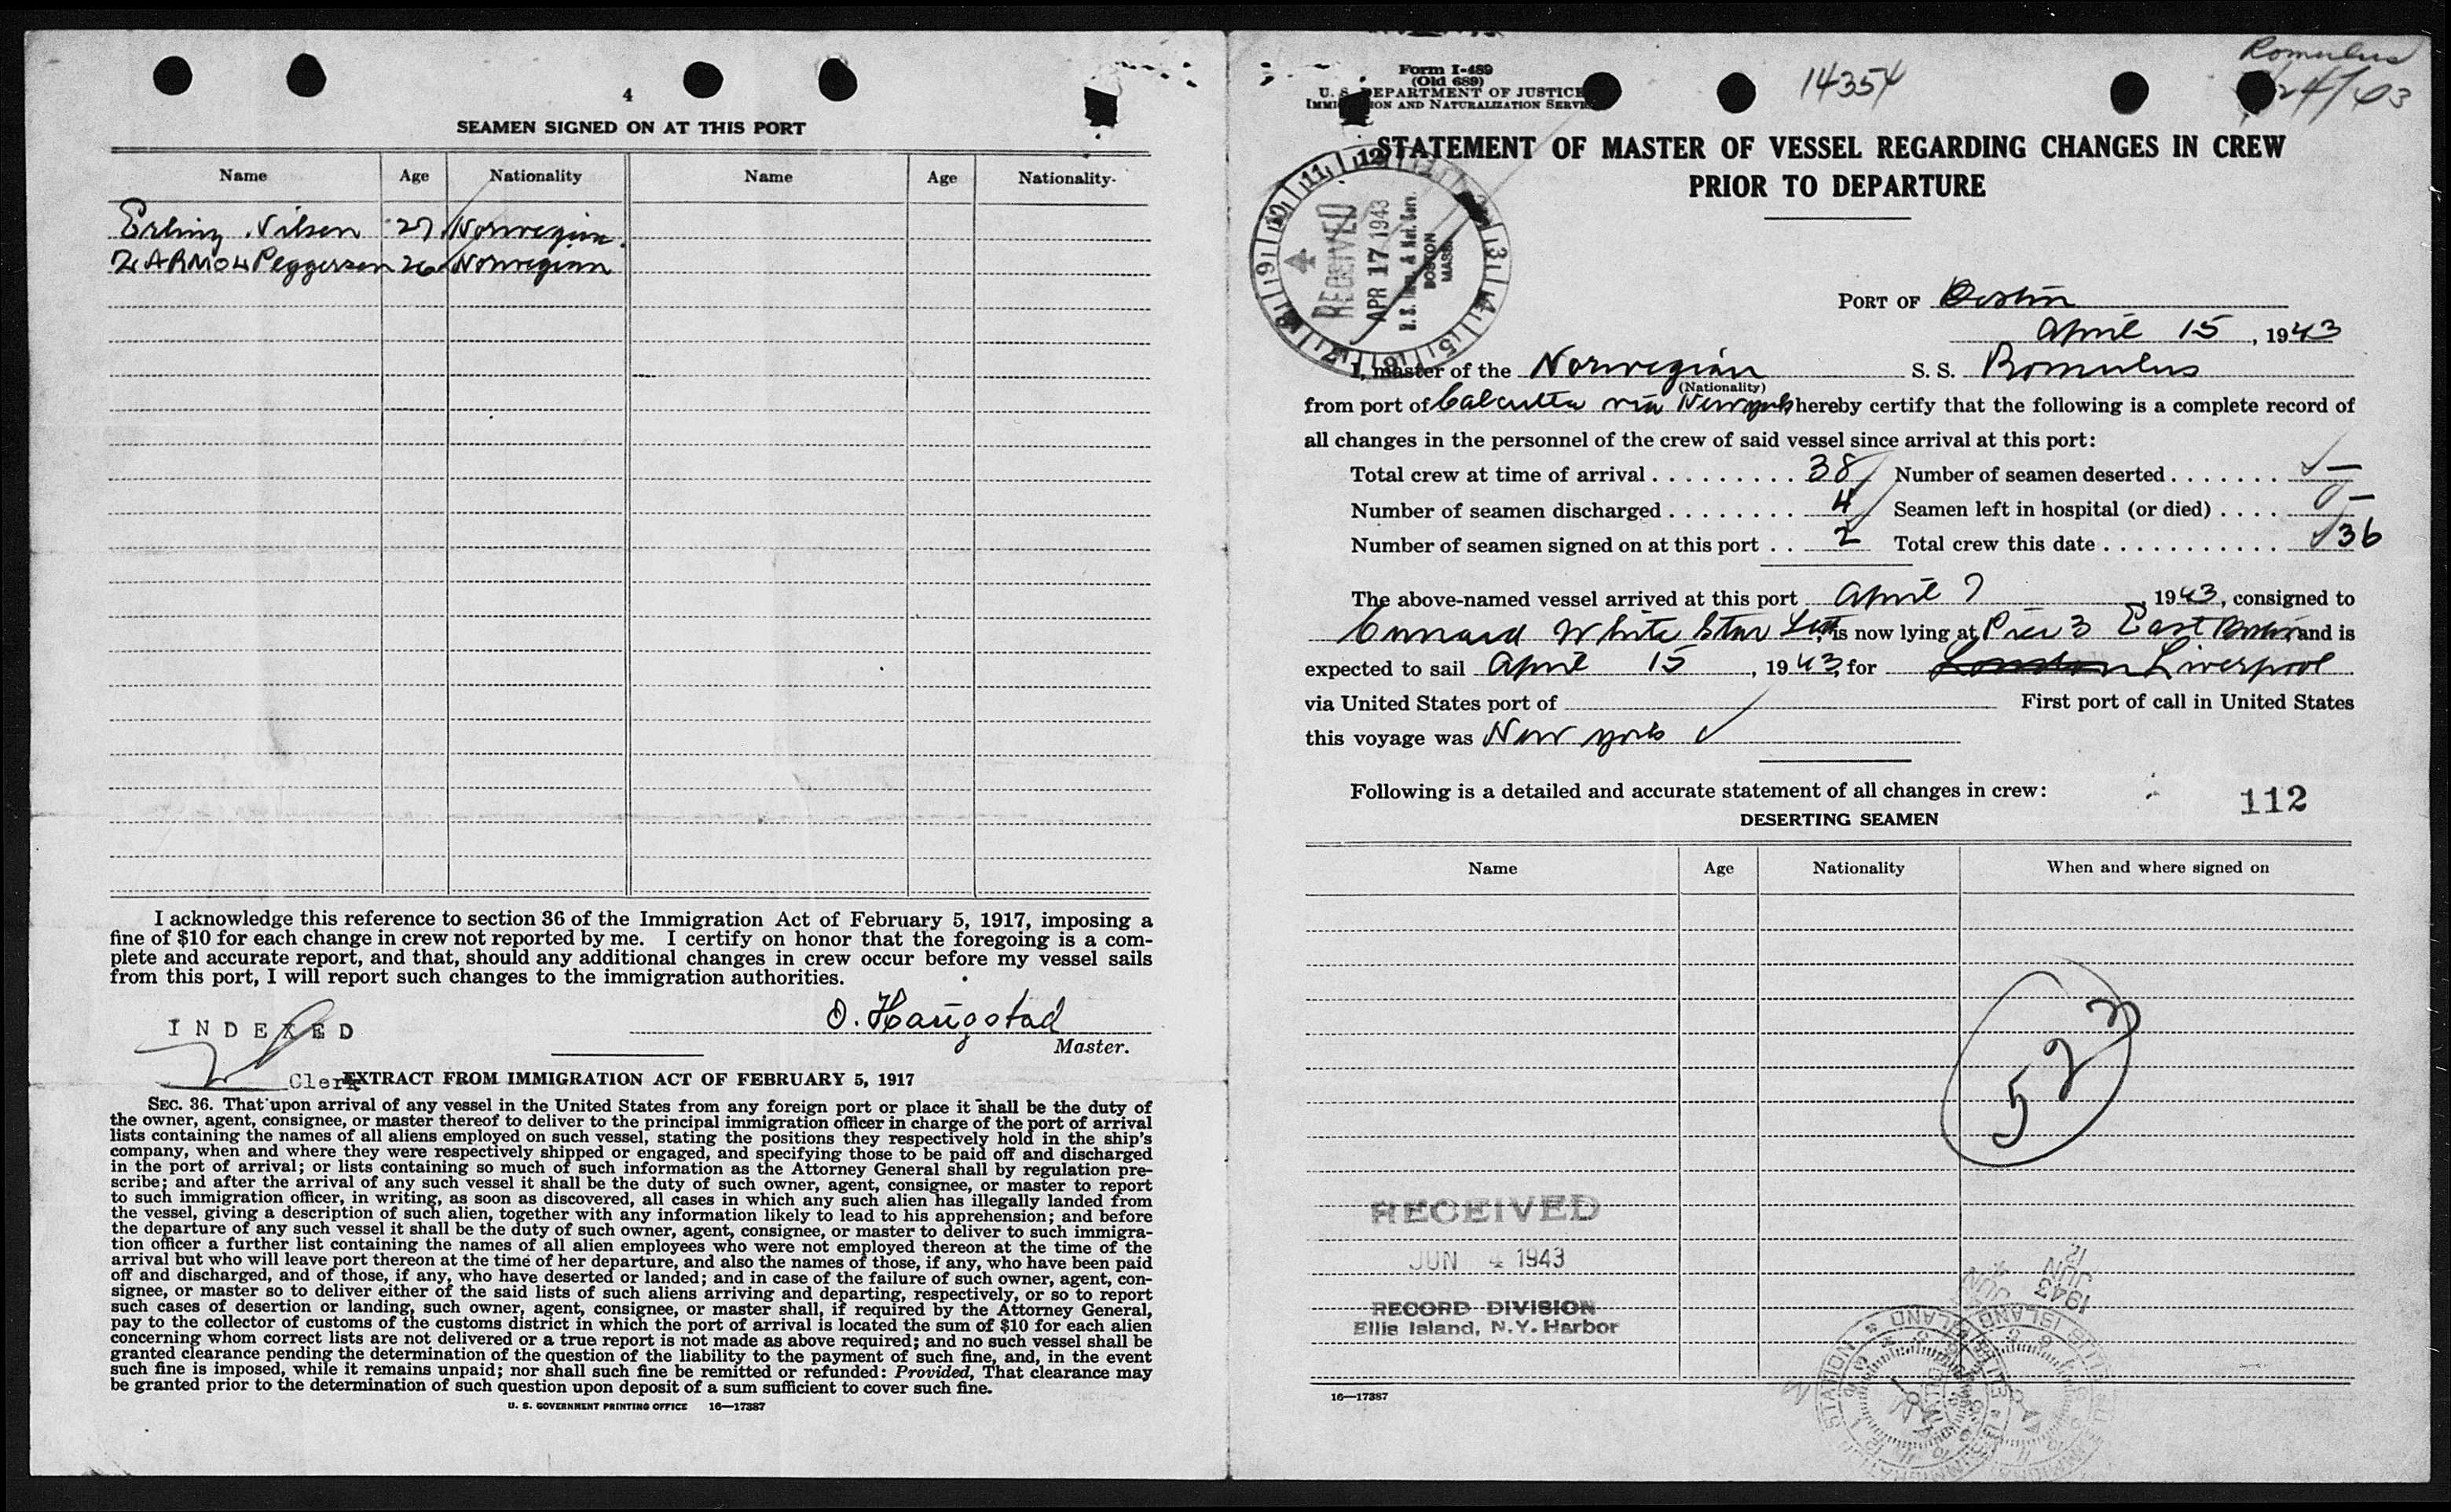 4
SEAMEN SIGNED ON AT THIS PORT
Name Age Nationality Name Age Nationality
Erling Nilsen 27 Norwegian
26 Norwegian
I acknowledge this reference to section 36 of the Immigration Act of February 5, 1917, imposing a
fine of $10 for each change in crew not reported by me. I certify on honor that the foregoing is a com-
plete and accurate report, and that, should any additional changes in crew occur before my vessel sails
from this port, I will report such changes to the immigration authorities.
INDEXED
O. Haugstad
Master.
Clerk
EXTRACT FROM IMMIGRATION ACT OF FEBRUARY 5, 1917
SEC. 36. That upon arrival of any vessel in the United States from any foreign port or place it shall be the duty of
the owner, agent, consignee, or master thereof to deliver to the principal immigration officer in charge of the port of arrival
lists containing the names of all aliens employed on such vessel, stating the positions they respectively hold in the ship's
company, when and where they were respectively shipped or engaged, and specifying those to be paid off and discharged
in the port of arrival; or lists containing so much of such information as the Attorney General shall by regulation pre-
scribe; and after the arrival of any such vessel it shall be the duty of such owner, agent, consignee, or master to report
to such immigration officer, in writing, as soon as discovered, all cases in which any such alien has illegally landed from
the vessel, giving a description of such alien, together with any information likely to lead to his apprehension; and before
the departure of any such vessel it shall be the duty of such owner, agent, consignee, or master to deliver to such immigra-
tion officer a further list containing the names of all alien employees who were not employed thereon at the time of the
arrival but who will leave port thereon at the time of her departure, and also the names of those, if any, who have been paid
off and discharged, and of those, if any, who have deserted or landed; and in case of the failure of such owner, agent, con-
signee, or master so to deliver either of the said lists of such aliens arriving and departing, respectively, or so to report
such cases of desertion or landing, such owner, agent, consignee, or master shall, if required by the Attorney General,
pay to the collector of customs of the customs district in which the port of arrival is located the sum of $10 for each alien
concerning whom correct lists are not delivered or a true report is not made as above required; and no such vessel shall be
granted clearance pending the determination of the question of the liability to the payment of such fine, and, in the event
such fine is imposed, while it remains unpaid; nor shall such fine be remitted or refunded: Provided, That clearance may
be granted prior to the determination of such question upon deposit of a sum sufficient to cover such fine.
U. S. GOVERNMENT PRINTING OFFICE 16—17387
Romulus
Form I-489
(Old 689)
U. S. DEPARTMENT OF JUSTICE
IMMIGRATION AND NATURALIZATION SERVICE
14354
STATEMENT OF MASTER OF VESSEL REGARDING CHANGES IN CREW
PRIOR TO DEPARTURE
RECEIVED
APR 17 1943
BOSTON
MASS.
PORT OF Boston
April 15, 1943
I, master of the Norwegian S. S. Romulus
(Nationality)
from port of Calcutta via New York hereby certify that the following is a complete record of
all changes in the personnel of the crew of said vessel since arrival at this port:
Total crew at time of arrival 38 Number of seamen deserted —
Number of seamen discharged 4 Seamen left in hospital (or died) —
Number of seamen signed on at this port 2 Total crew this date 36
The above-named vessel arrived at this port April 7, 1943, consigned to
Cunard White Star Ltd, is now lying at Pier 3 East Boston and is
expected to sail April 15, 1943, for London Liverpool
via United States port of First port of call in United States
this voyage was New York
Following is a detailed and accurate statement of all changes in crew:
112
DESERTING SEAMEN
Name Age Nationality When and where signed on
523
RECEIVED
JUN 4 1943
RECORD DIVISION
Ellis Island, N.Y. Harbor
16—17387